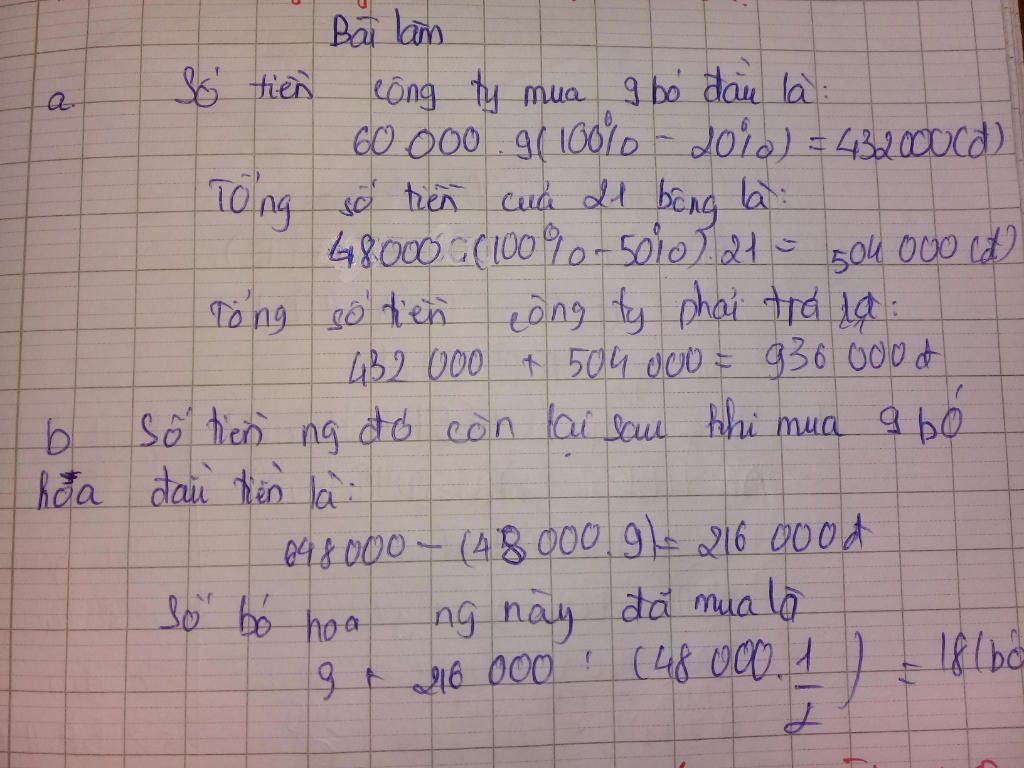 Bài làm
a. Số tiền công ty mua 9 bó đầu là:
60 000 . 9(100% - 20%) = 432000(đ)
Tổng số tiền của 21 bông là:
48.000 . (100% - 50%) . 21 = 504 000 (đ)
Tổng số tiền công ty phải trả là:
432 000 + 504 000 = 936 000đ
b Số tiền ng đó còn lại sau khi mua 9 bó
hoa đầu tiên là:
648000 - (48 000 . 9) = 216 000đ
Số bó hoa ng này đã mua là
9 + 216 000 : (48 000 . 1/2) = 18 (bó